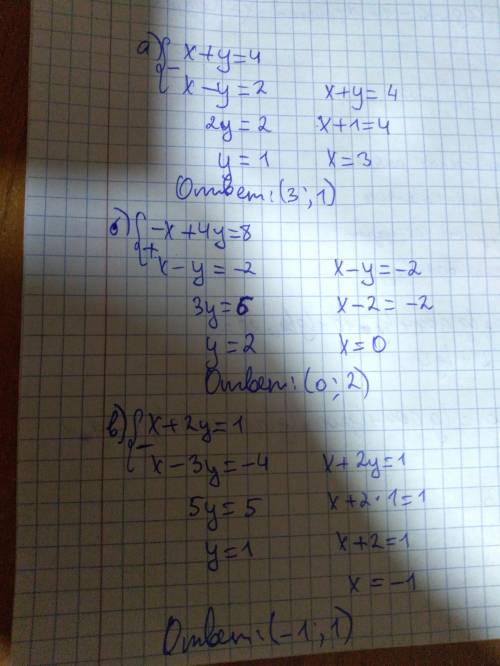 а) { x+y=4
− x−y=2 x+y=4
2y=2 x+1=4
y=1 x=3
Ответ: (3; 1)
б) { −x+4y=8
+ x−y=−2 x−y=−2
3y=6 x−2=−2
y=2 x=0
Ответ: (0; 2)
в) { x+2y=1
− x−3y=−4 x+2y=1
5y=5 x+2·1=1
y=1 x+2=1
x=−1
Ответ: (−1; 1)